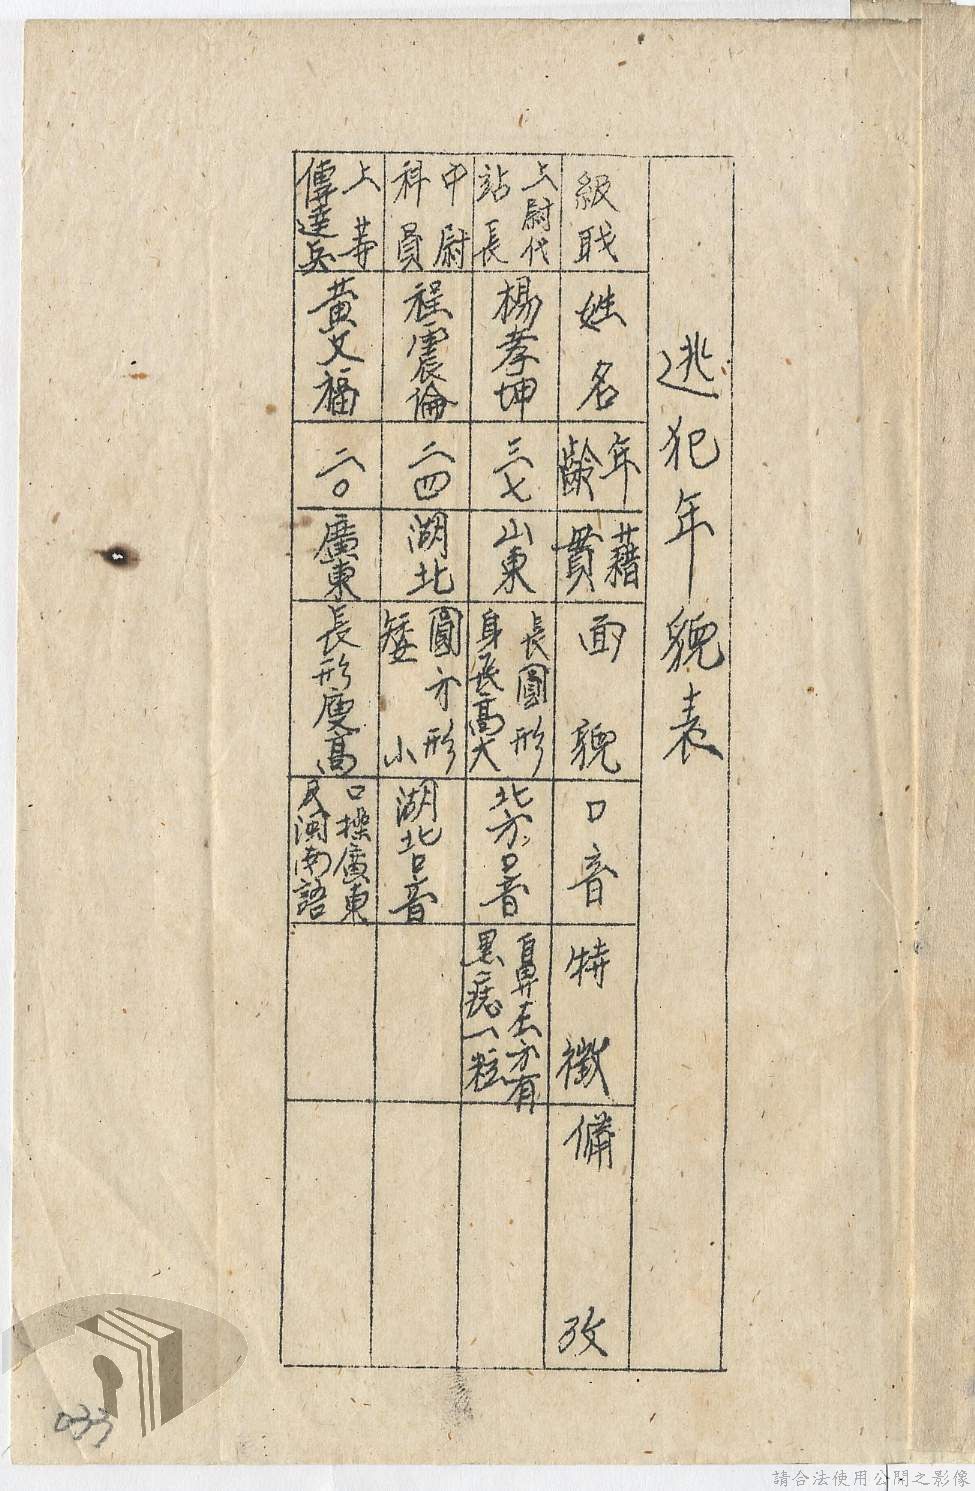 逃犯年貌表
級職
姓名
年齡
藉貫
面貌
口音
特徵
備攷
上尉代
站長
楊孝坤
三七
山東
長圓形
身長高大
北方口音
鼻左方有
黑痣一粒
中尉
科員
程震倫
二四
湖北
圓方形
矮小
湖北口音
上等
傳達兵
黃文福
二〇
廣東
長形瘦高
口操廣東
及閩南語
033
請合法使用公開之影像